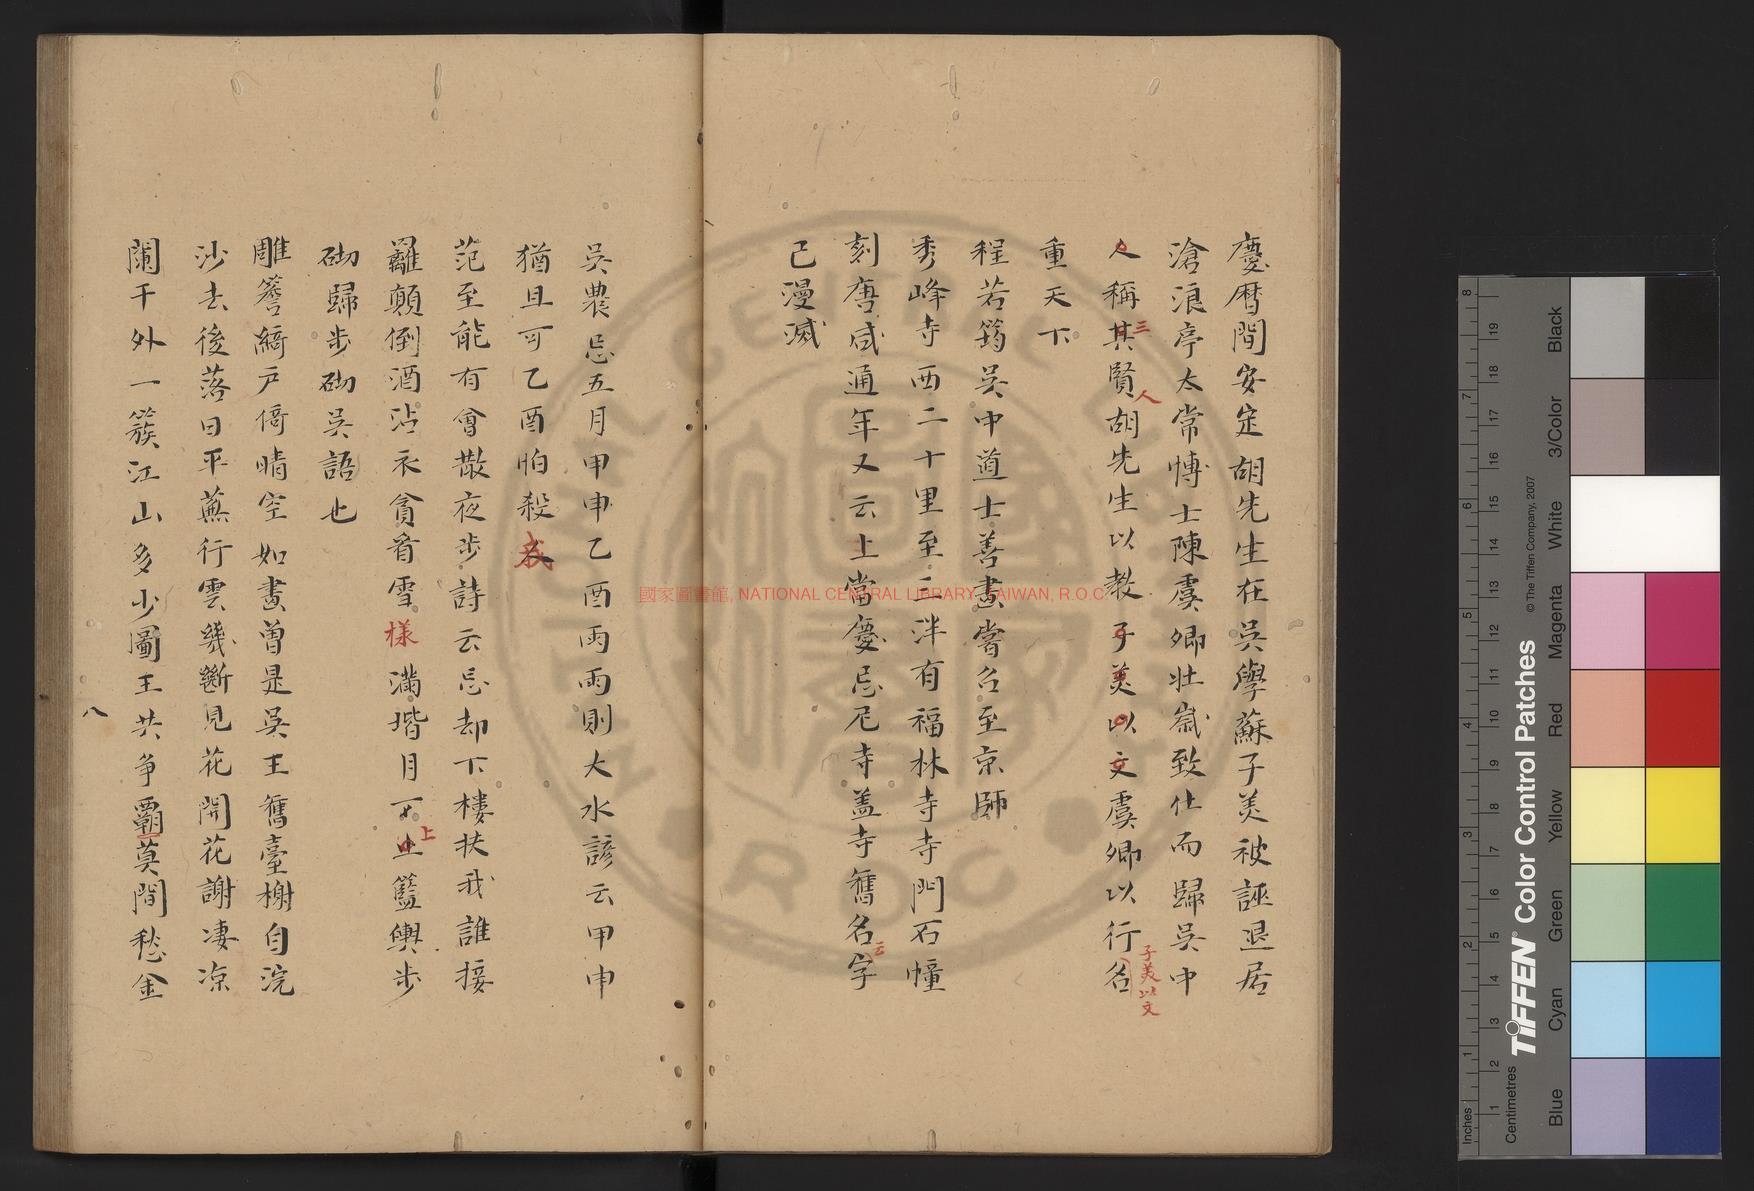 慶曆間安定胡先生在吳學蘇子美被誣退居
滄浪亭太常博士陳虞卿壯嵗致仕而歸吳中
人稱其賢胡先生以教子美以文虞卿以行名
三
人
子美以文
重天下
程若筠吳中道士善畫嘗召至京師
秀峰寺西二十里至三洋有福林寺寺門石幢
刻唐咸通年又云上當憂忌尼寺盖寺舊名字
云
已漫滅
吳農忌五月甲申乙酉雨雨則大水諺云甲申
猶且可乙酉怕殺我
范至能有會散夜步詩云忘却下樓扶我誰接
䍦顛倒酒沾衣貪看雪樣滿堦月不上籃輿步
上
砌歸步砌吳語也
雕簷綺戶倚晴空如畫曾是吳王舊臺榭自浣
沙去後落日平蕪行雲幾斷見花開花謝凄凉
闌干外一簇江山多少圖王共争霸莫閒愁金
八
國家圖書館, NATIONAL CENTRAL LIBRARY, TAIWAN, R.O.C
NATIONAL CENTRAL LIBRARY
ROC
Inches
Centimetres
1 2 3 4 5 6 7 8
1 2 3 4 5 6 7 8 9 10 11 12 13 14 15 16 17 18 19
TIFFEN® Color Control Patches
© The Tiffen Company, 2007
Blue
Cyan
Green
Yellow
Red
Magenta
White
3/Color
Black